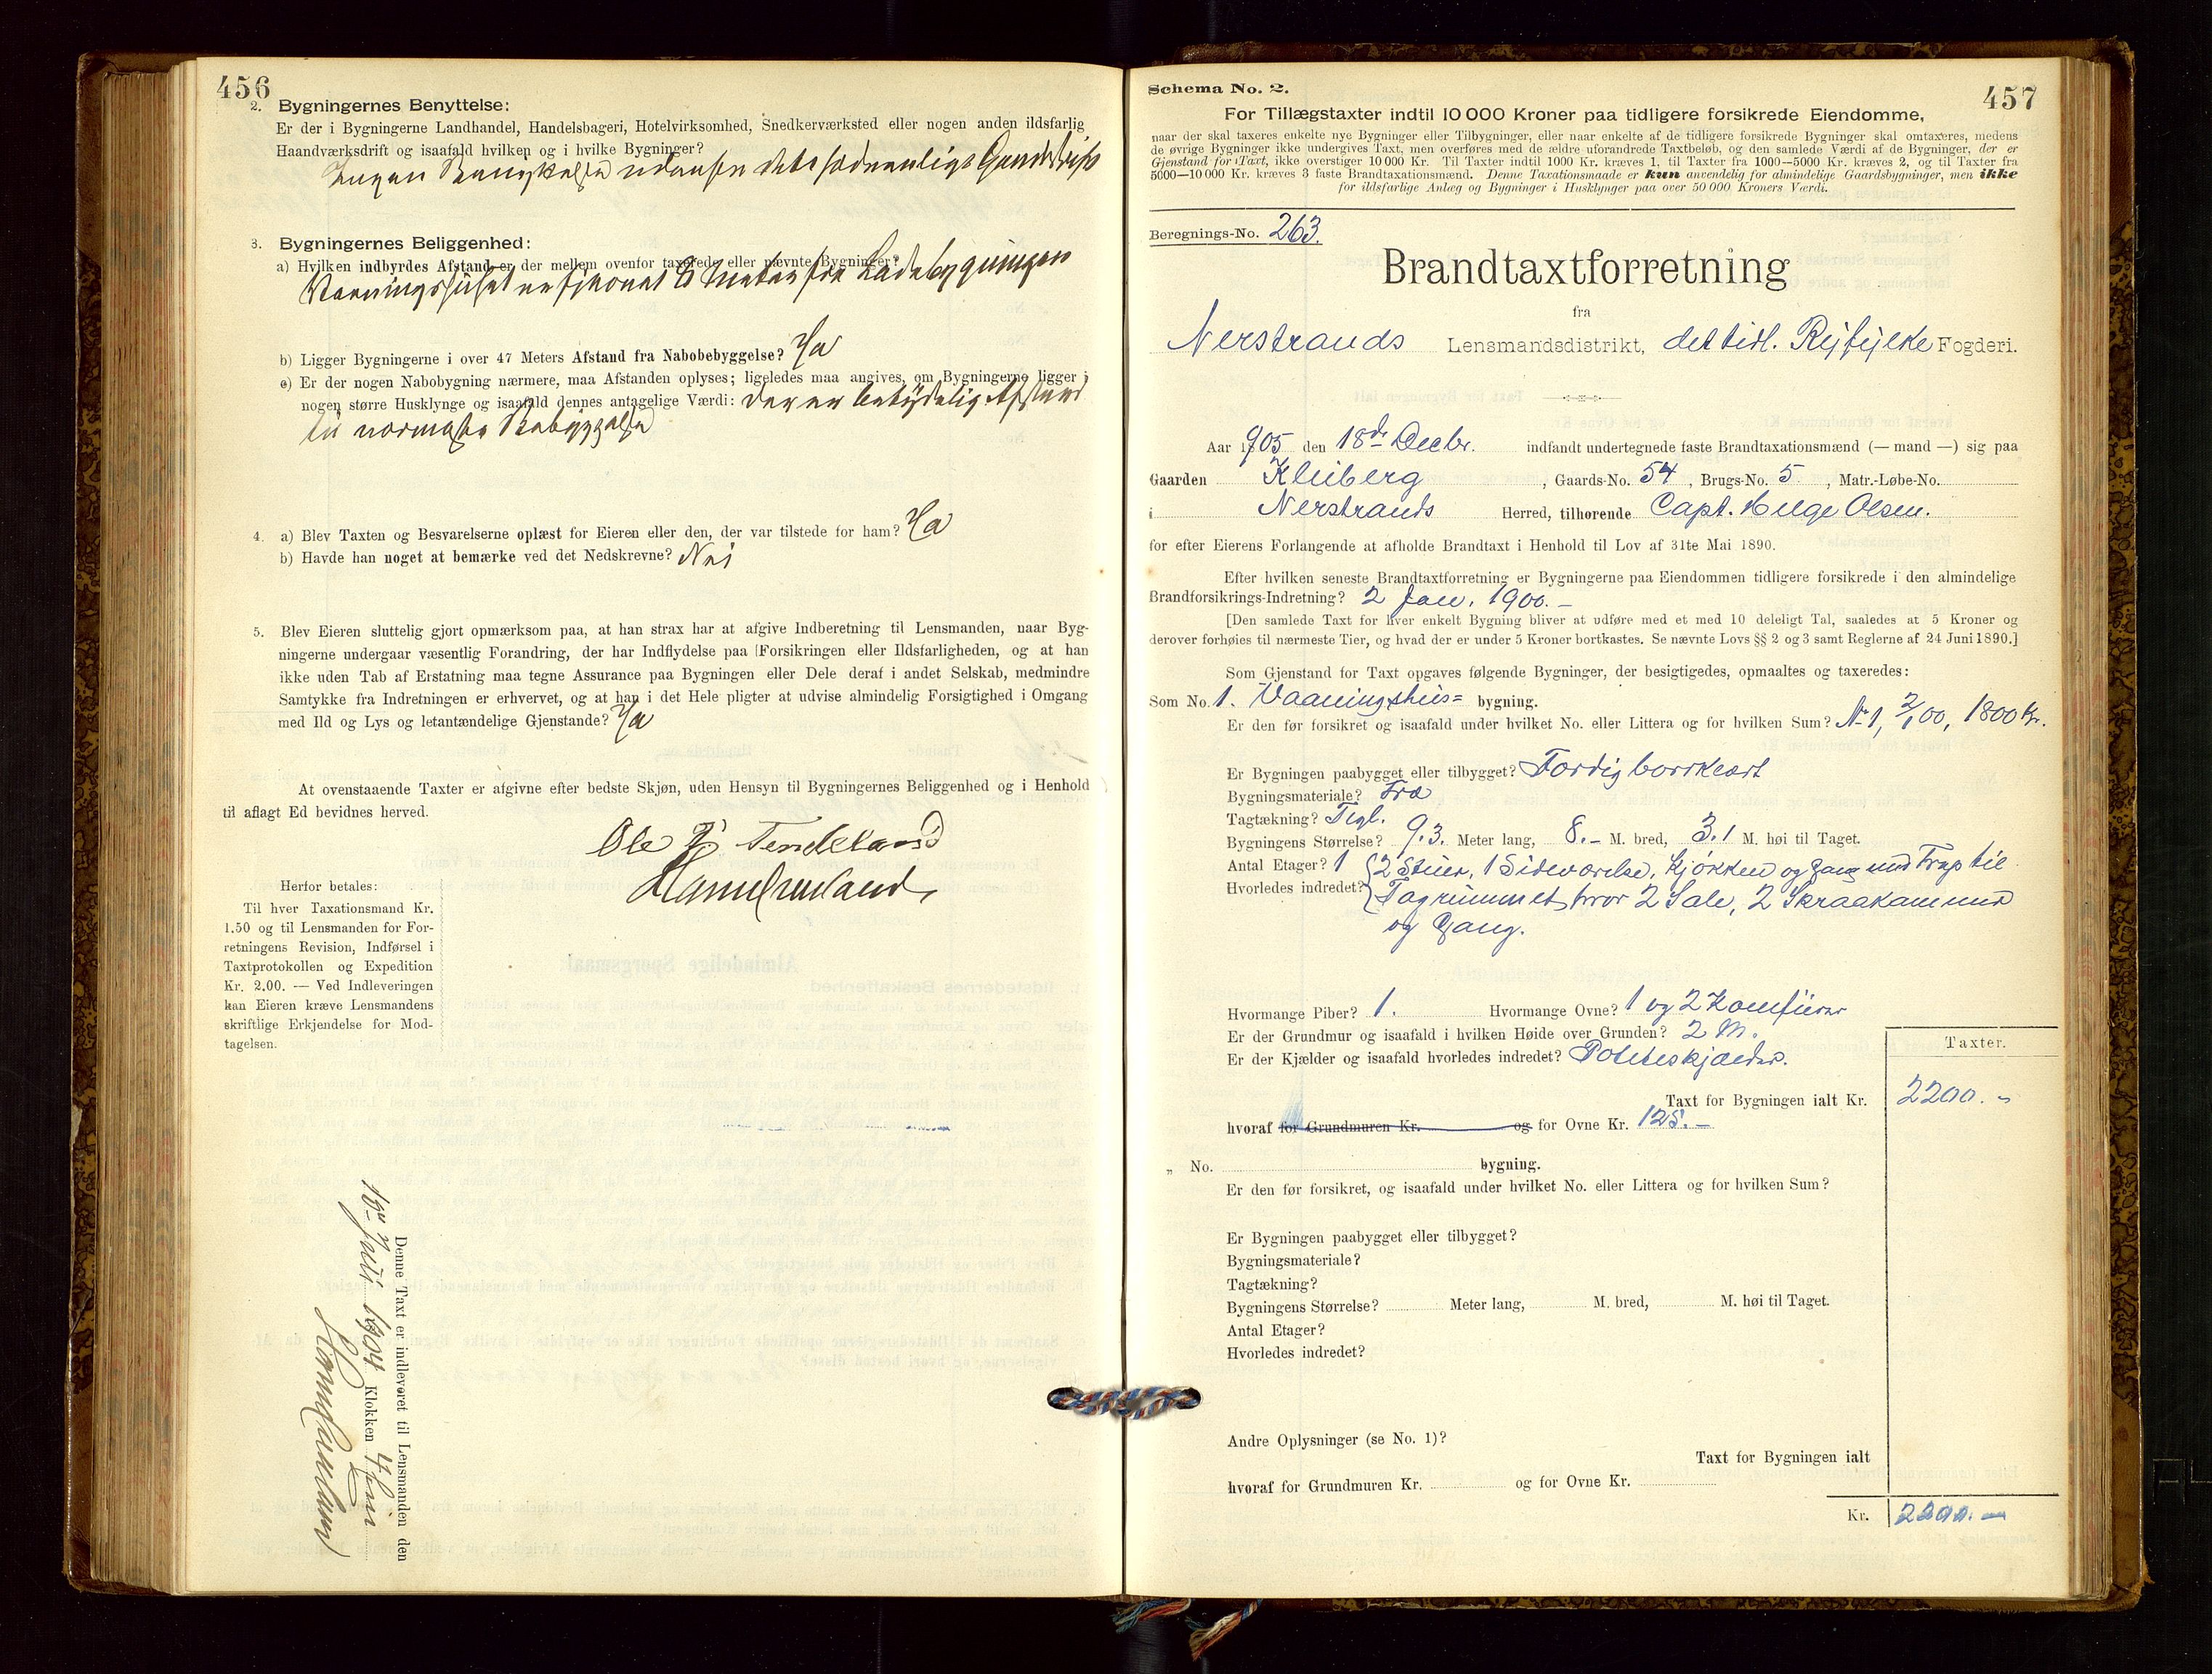 456
2. Bygningernes Benyttelse:
Er der i Bygningerne Landhandel, Handelsbageri, Hotelvirksomhed, Snedkerværksted eller nogen anden ildsfarlig
Haandværksdrift og isaafald hvilken og i hvilke Bygninger?
Ingen udenfor det sædvanlige Gaardsdrift
3. Bygningernes Beliggenhed:
a) Hvilken indbyrdes Afstand er der mellem ovenfor taxerede eller nævnte Bygninger?
Vaaningshuset er fjernet 8 Meter fra Ladebygningen
b) Ligger Bygningerne i over 47 Meters Afstand fra Nabobebyggelse? Ja
c) Er der nogen Nabobygning nærmere, maa Afstanden oplyses; ligeledes maa angives, om Bygningerne ligger i
nogen større Husklynge og isaafald dennes antagelige Værdi: Der er betydelig Afstand
til nærmeste Bebyggelse
4. a) Blev Taxten og Besvarelserne oplæst for Eieren eller den, der var tilstede for ham? Ja
b) Havde han noget at bemærke ved det Nedskrevne? Nei
5. Blev Eieren sluttelig gjort opmærksom paa, at han strax har at afgive Indberetning til Lensmanden, naar Byg-
ningerne undergaar væsentlig Forandring, der har Indflydelse paa Forsikringen eller Ildsfarligheden, og at han
ikke uden Tab af Erstatning maa tegne Assurance paa Bygningen eller Dele deraf i andet Selskab, medmindre
Samtykke fra Indretningen er erhvervet, og at han i det Hele pligter at udvise almindelig Forsigtighed i Omgang
med Ild og Lys og letantændelige Gjenstande? Ja
At ovenstaaende Taxter er afgivne efter bedste Skjøn, uden Hensyn til Bygningernes Beliggenhed og i Henhold
til aflagt Ed bevidnes herved.
Ole
Herfor betales:
Til hver Taxationsmand Kr.
1.50 og til Lensmanden for For-
retningens Revision, Indførsel i
Taxtprotokollen og Expedition
Kr. 2.00. — Ved Indleveringen
kan Eieren kræve Lensmandens
skriftlige Erkjendelse for Mod-
tagelsen.
Denne Taxt er indleveret til Lensmanden den
1904 Klokken 4
457
Schema No. 2.
For Tillægstaxter indtil 10 000 Kroner paa tidligere forsikrede Eiendomme,
naar der skal taxeres enkelte nye Bygninger eller Tilbygninger, eller naar enkelte af de tidligere forsikrede Bygninger skal omtaxeres, medens
de øvrige Bygninger ikke undergives Taxt, men overføres med de ældre uforandrede Taxtbeløb, og den samlede Værdi af de Bygninger, der er
Gjenstand for Taxt, ikke overstiger 10 000 Kr. Til Taxter indtil 1000 Kr. kræves 1, til Taxter fra 1000—5000 Kr. kræves 2, og til Taxter fra
5000—10 000 Kr. kræves 3 faste Brandtaxationsmænd. Denne Taxationsmaade er kun anvendelig for almindelige Gaardsbygninger, men ikke
for ildsfarlige Anlæg og Bygninger i Husklynger paa over 50 000 Kroners Værdi.
Beregnings-No. 263.
Brandtaxtforretning
fra
Nerstrands Lensmandsdistrikt, det tidl. Ryfylke Fogderi.
Aar 1905 den 18de Decbr. indfandt undertegnede faste Brandtaxationsmænd (— mand —) sig paa
Gaarden Kleiberg, Gaards-No. 54, Brugs-No. 5, Matr.-Løbe-No.
i Nerstrands Herred, tilhørende Capt. Helge Olsen.
for efter Eierens Forlangende at afholde Brandtaxt i Henhold til Lov af 31te Mai 1890.
Efter hvilken seneste Brandtaxtforretning er Bygningerne paa Eiendommen tidligere forsikrede i den almindelige
Brandforsikrings-Indretning? 2 Jan. 1900. —
[Den samlede Taxt for hver enkelt Bygning bliver at udføre med et med 10 deleligt Tal, saaledes at 5 Kroner og
derover forhøies til nærmeste Tier, og hvad der er under 5 Kroner bortkastes. Se nævnte Lovs §§ 2 og 3 samt Reglerne af 24 Juni 1890.]
Som Gjenstand for Taxt opgaves følgende Bygninger, der besigtigedes, opmaaltes og taxeredes:
Som No. 1. Vaaningshus= bygning.
Er den før forsikret og isaafald under hvilket No. eller Littera og for hvilken Sum? No 1, 2/1 00, 1800 Kr.
Er Bygningen paabygget eller tilbygget?
Bygningsmateriale? Træ
Tagtækning? Tegl.
Bygningens Størrelse? 9.3. Meter lang, 8.- M. bred, 3.1 M. høi til Taget.
Antal Etager? 1
Hvorledes indredet? 2 Stuer, 1 Sideværelse, Kjøkken og Gang med Trap til
Tagrummet hvor 2 Sale, 2 Skraakammer
og Gang.
Hvormange Piber? 1. Hvormange Ovne? 1 og 2 Komfurer
Er der Grundmur og isaafald i hvilken Høide over Grunden? 2 M.
Er der Kjælder og isaafald hvorledes indredet? Poteteskjælder.
Taxter.
Taxt for Bygningen ialt Kr. 2200. -
hvoraf for Grundmuren Kr. og for Ovne Kr. 125. —
„ No. bygning.
Er den før forsikret, og isaafald under hvilket No. eller Littera og for hvilken Sum?
Er Bygningen paabygget eller tilbygget?
Bygningsmateriale?
Tagtækning?
Bygningens Størrelse? Meter lang, M. bred, M. høi til Taget.
Antal Etager?
Hvorledes indredet?
Andre Oplysninger (se No. 1)?
Taxt for Bygningen ialt
hvoraf for Grundmuren Kr. og for Ovne Kr.
Kr. 2200. —